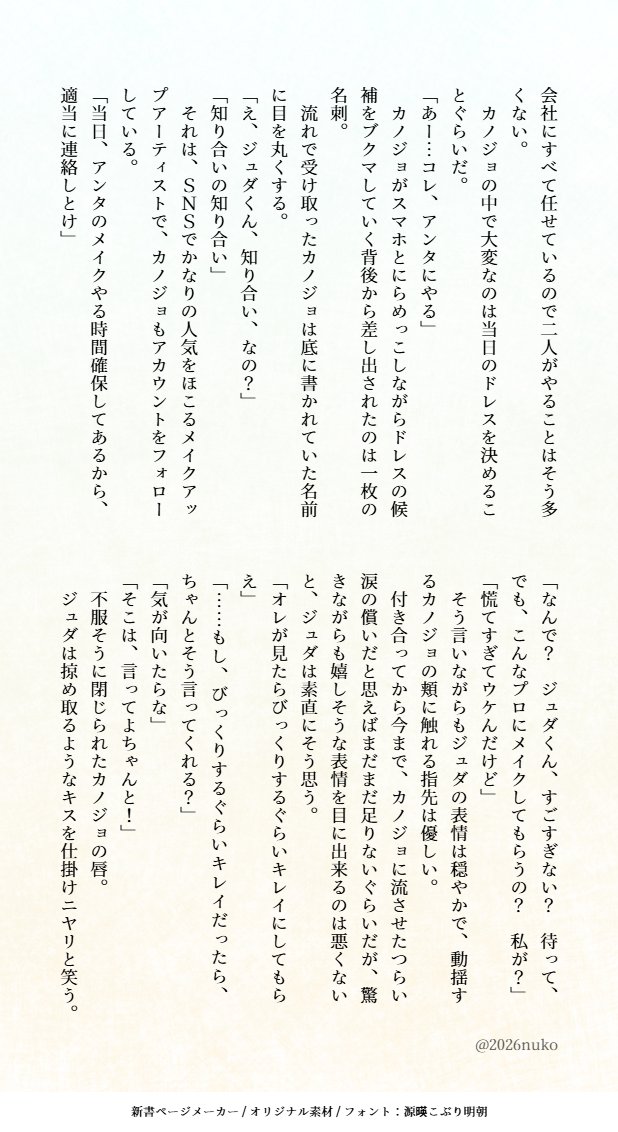 会社にすべて任せているので二人がやることはそう多
くない。
　カノジョの中で大変なのは当日のドレスを決めるこ
とぐらいだ。
「あー…コレ、アンタにやる」
　カノジョがスマホとにらめっこしながらドレスの候
補をブクマしていく背後から差し出されたのは一枚の
名刺。
　流れで受け取ったカノジョは底に書かれていた名前
に目を丸くする。
「え、ジュダくん、知り合い、なの？」
「知り合いの知り合い」
　それは、ＳＮＳでかなりの人気をほこるメイクアッ
プアーティストで、カノジョもアカウントをフォロー
している。
「当日、アンタのメイクやる時間確保してあるから、
適当に連絡しとけ」
「なんで？　ジュダくん、すごすぎない？　待って、
でも、こんなプロにメイクしてもらうの？　私が？」
「慌てすぎてウケんだけど」
　そう言いながらもジュダの表情は穏やかで、動揺す
るカノジョの頬に触れる指先は優しい。
　付き合ってから今まで、カノジョに流させたつらい
涙の償いだと思えばまだまだ足りないぐらいだが、驚
きながらも嬉しそうな表情を目に出来るのは悪くない
と、ジュダは素直にそう思う。
「オレが見たらびっくりするぐらいキレイにしてもら
え」
「……もし、びっくりするぐらいキレイだったら、
ちゃんとそう言ってくれる？」
「気が向いたらな」
「そこは、言ってよちゃんと！」
　不服そうに閉じられたカノジョの唇。
　ジュダは掠め取るようなキスを仕掛けニヤリと笑う。
@2026nuko
新書ページメーカー / オリジナル素材 / フォント：源暎こぶり明朝